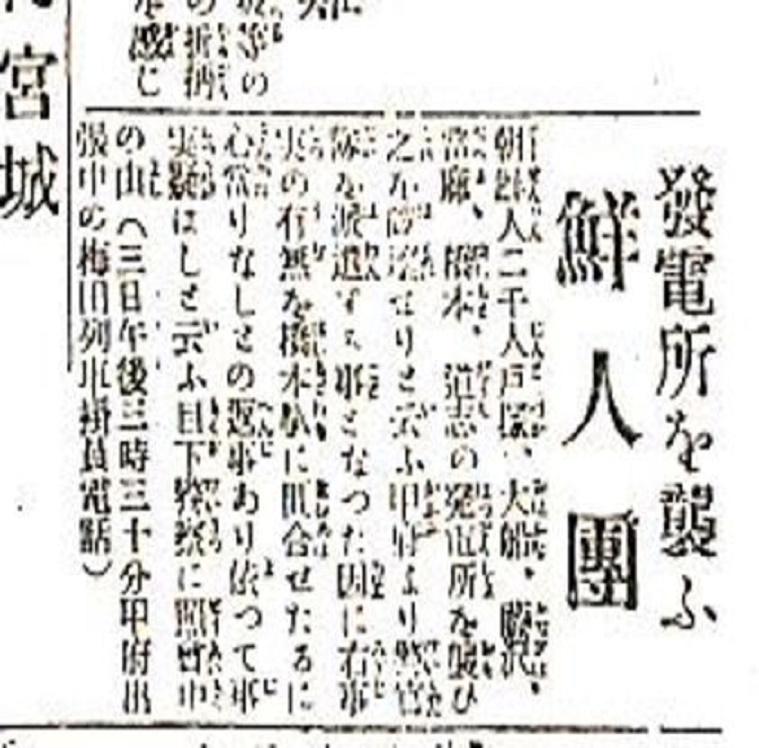 發電所を襲ふ
鮮人團
朝鮮人二千人戸塚、大船、藤沢、
當麻、橋本、道志の発電所を襲ひ
之を占せりと云ふ甲府より警官
隊を派遣する事となつた因に右事
実の有無を橋本駅に問合せたるに
心當りなしとの返事あり依つて事
実疑はしと云ふ目下警察に照會中
の由(三日午後三時三十分甲府出
張中の梅田列車掛員電話)
宮城
等の
の折柄
を感じ